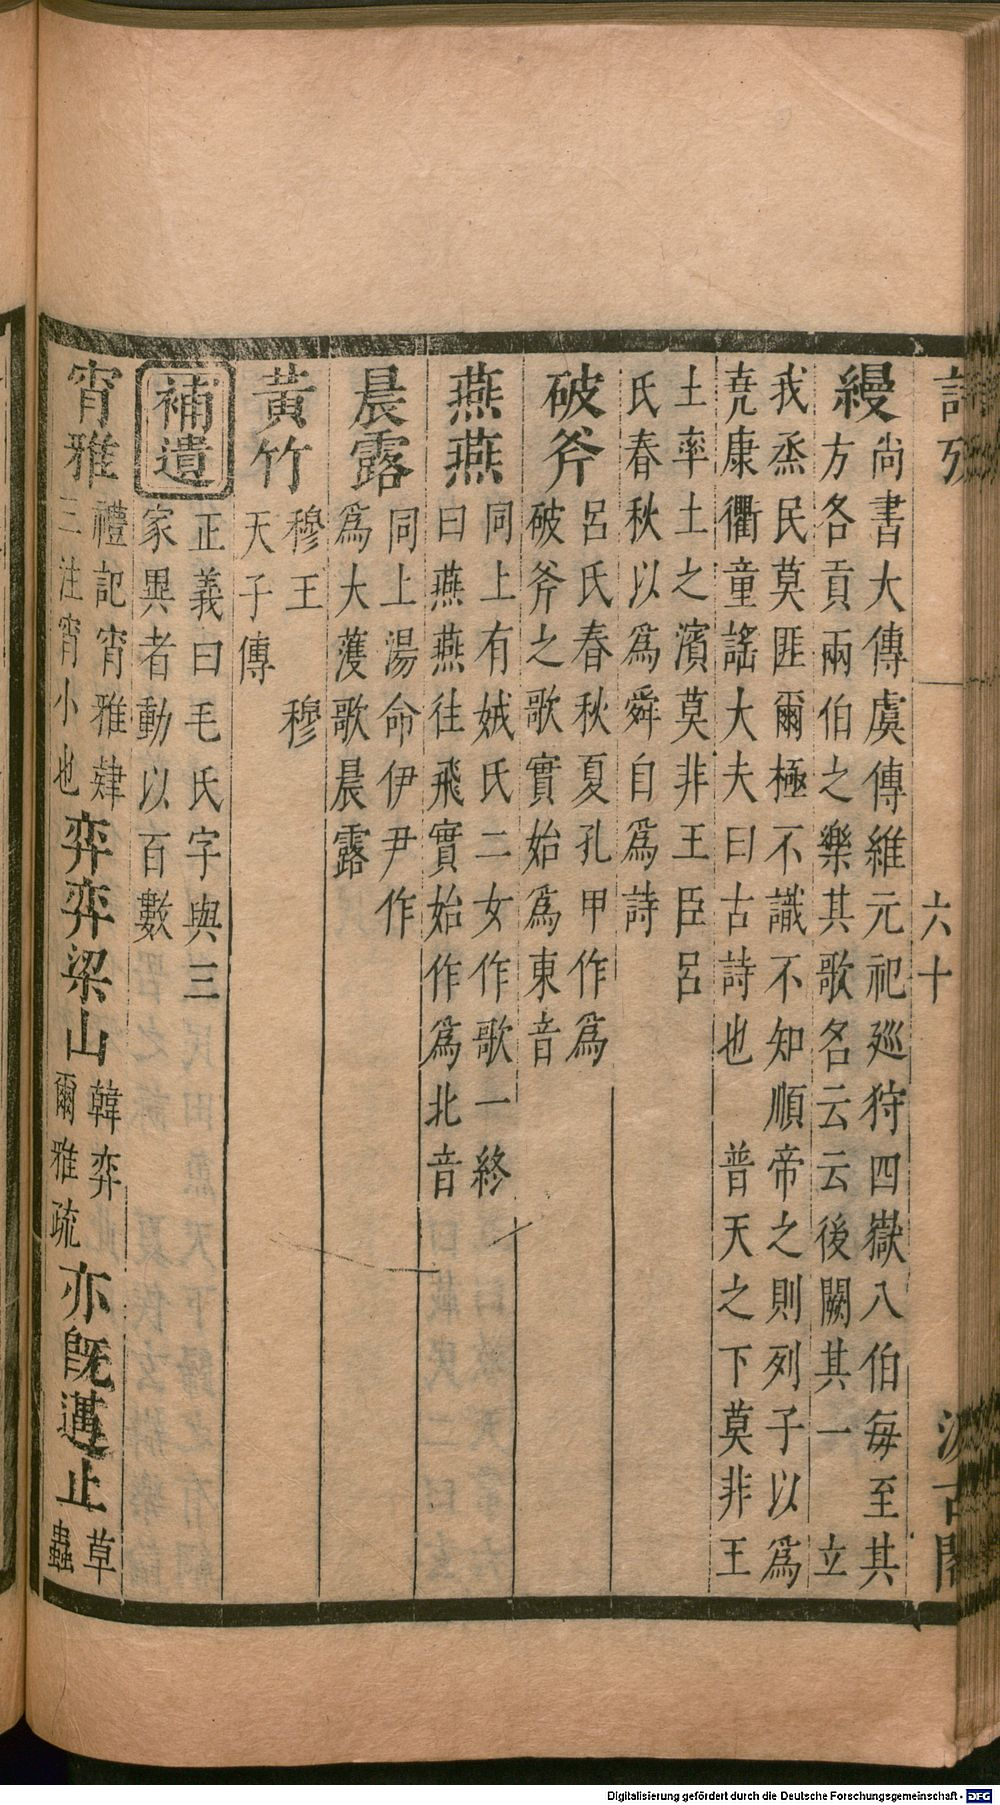 詩攷
六十
汲古閣
縵
尚書大傳虞傳維元祀廵狩四嶽八伯每至其
方各貢兩伯之樂其歌名云云後闕其一 立
我烝民莫匪爾極不識不知順帝之則列子以為
堯康衢童謠大夫曰古詩也 普天之下莫非王
土率土之濱莫非王臣呂
氏春秋以為舜自為詩
破斧
呂氏春秋夏孔甲作為
破斧之歌實始為東音
燕燕
同上有娀氏二女作歌一終
曰燕燕往飛實始作為北音
晨露
同上湯命伊尹作
為大濩歌晨露
黃竹
穆王 穆
天子傳
補遺
正義曰毛氏字與三
家異者動以百數
宵雅
禮記宵雅肄
三注宵小也
弈弈梁山
韓弈
爾雅疏
亦旣遘止
草
蟲
Digitalisierung gefördert durch die Deutsche Forschungsgemeinschaft - DFG